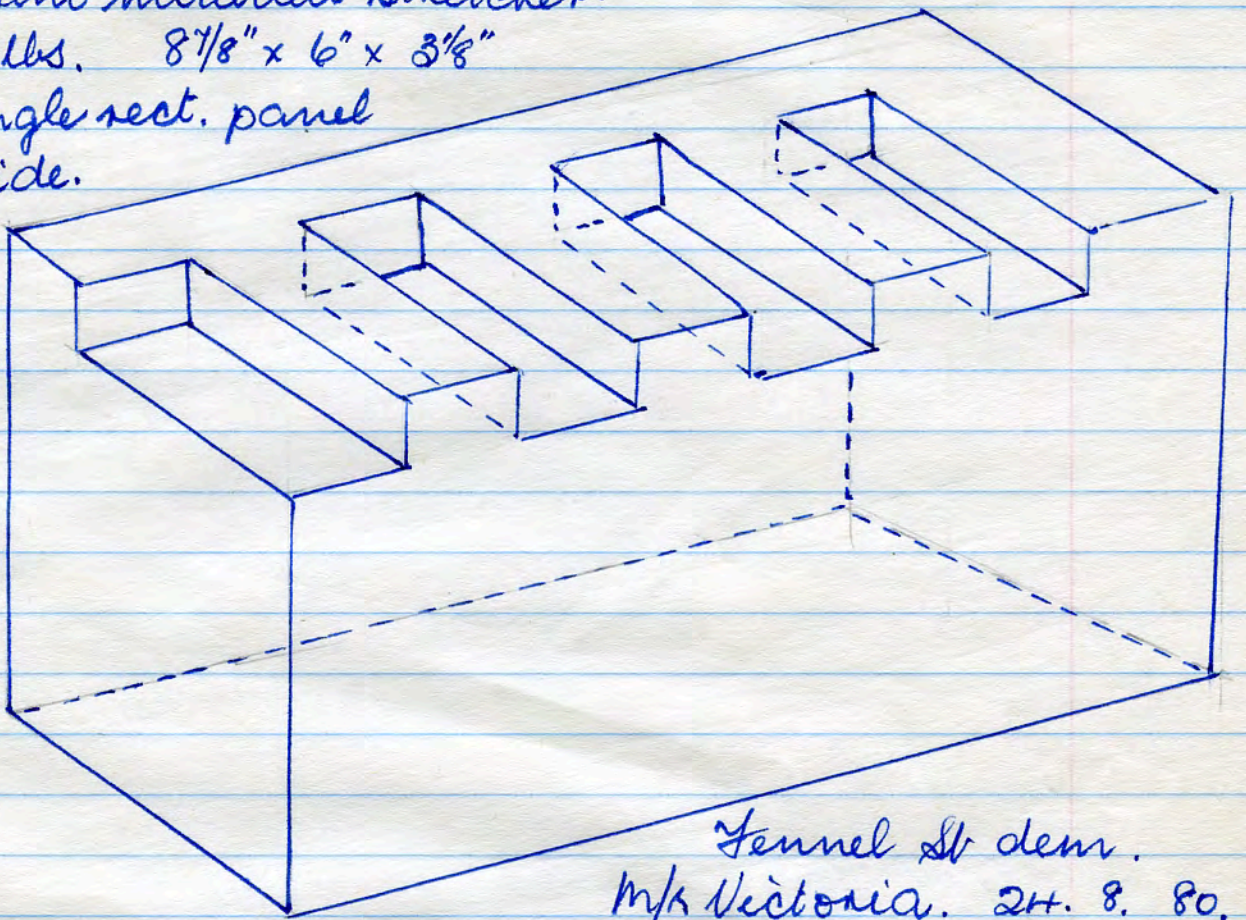 lbs. 8 7/8" x 6" x 3 1/8"
rect. panel
Fennel St dem.
M/R Victoria. 24. 8. 80.